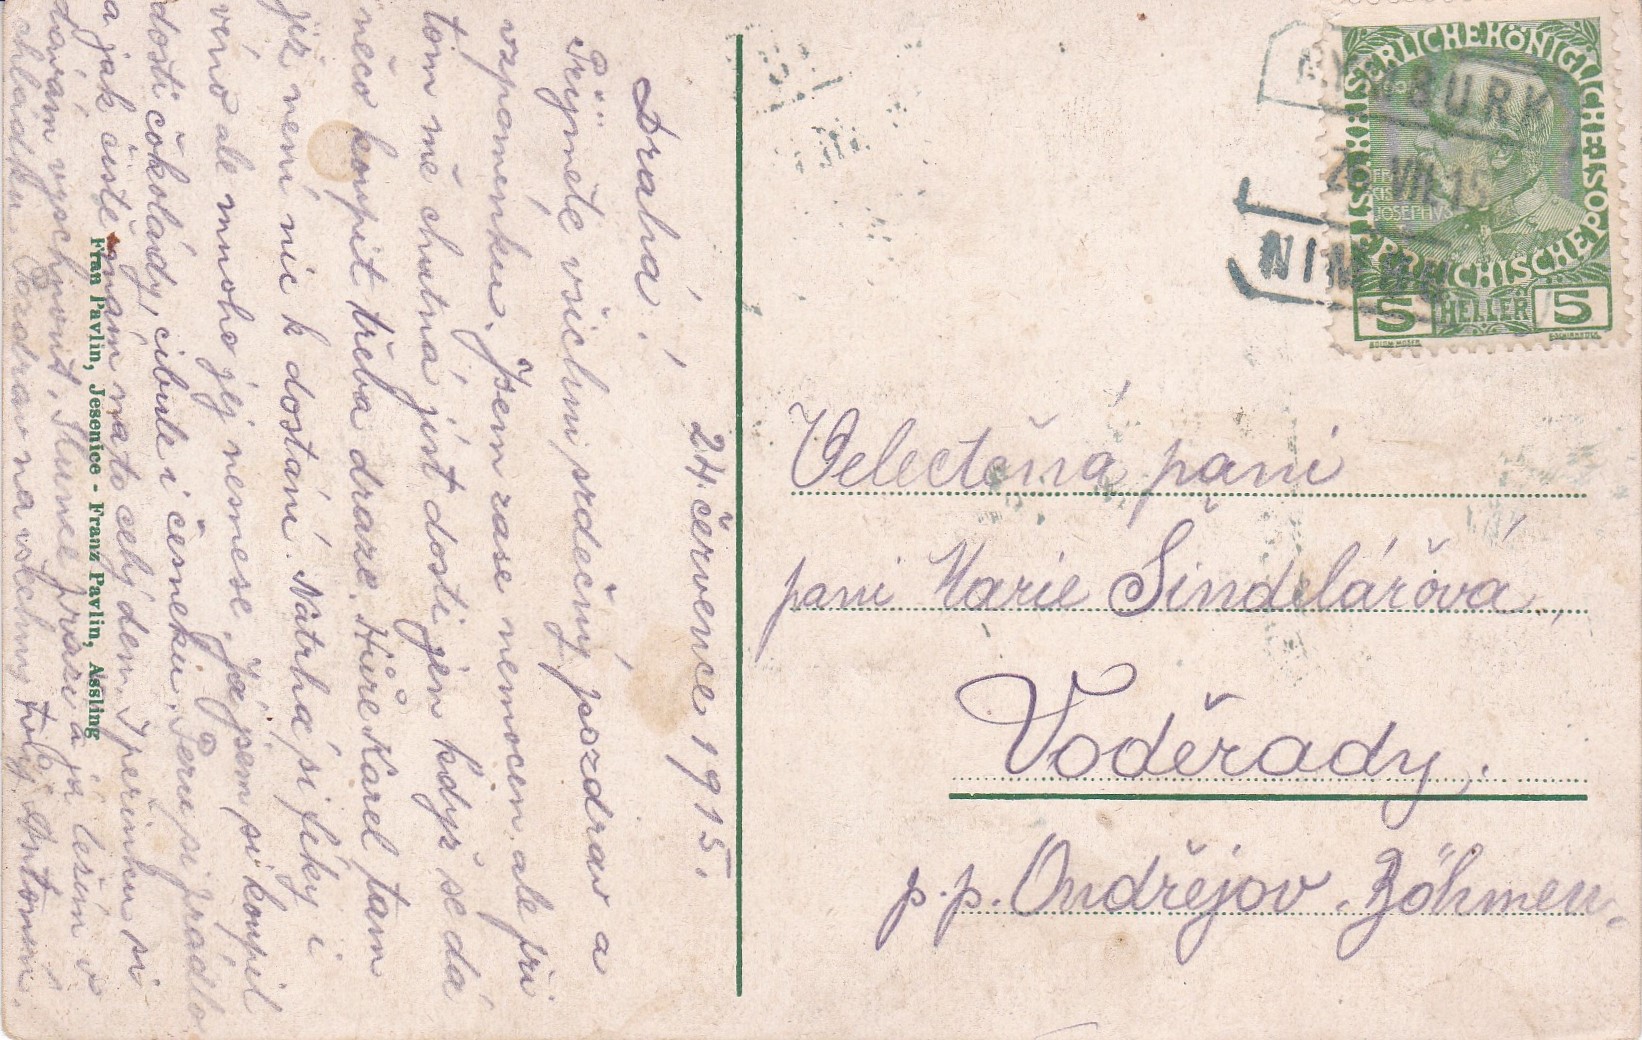 24. července 1915.
Drahá!
Přijměte všichni srdečný pozdrav a
vzpomínku. Jsem zase nemocen ale při
tom mě chutná jíst dosti jen když se dá
něco koupit třeba draze. Hůře Karel tam
již není nic k dostání. Natrhá si fíky i
víno ale mnoho jej nesmese. Já jsem si koupil
dosti čokolády, cibule i česneku. Peru si prádlo
a jak čistě mám na to celý den. I peřinku si
dávám vyschnout. Slunce praží a já ležím v
chládku. Pozdrav na všechny tvůj Antonín.
Fran Pavlin, Jesenice - Franz Pavlin, Assling
KAISERLICHE KÖNIGLICHE ÖSTERREICHISCHE POST
FRANCISCUS JOSEPHUS
5 HELLER 5
NYMBURK
VII. 15
NIMBURG
Velectěná paní
paní Marie Šindelářová,
Voděrady.
p.p. Ondřejov. Böhmen.